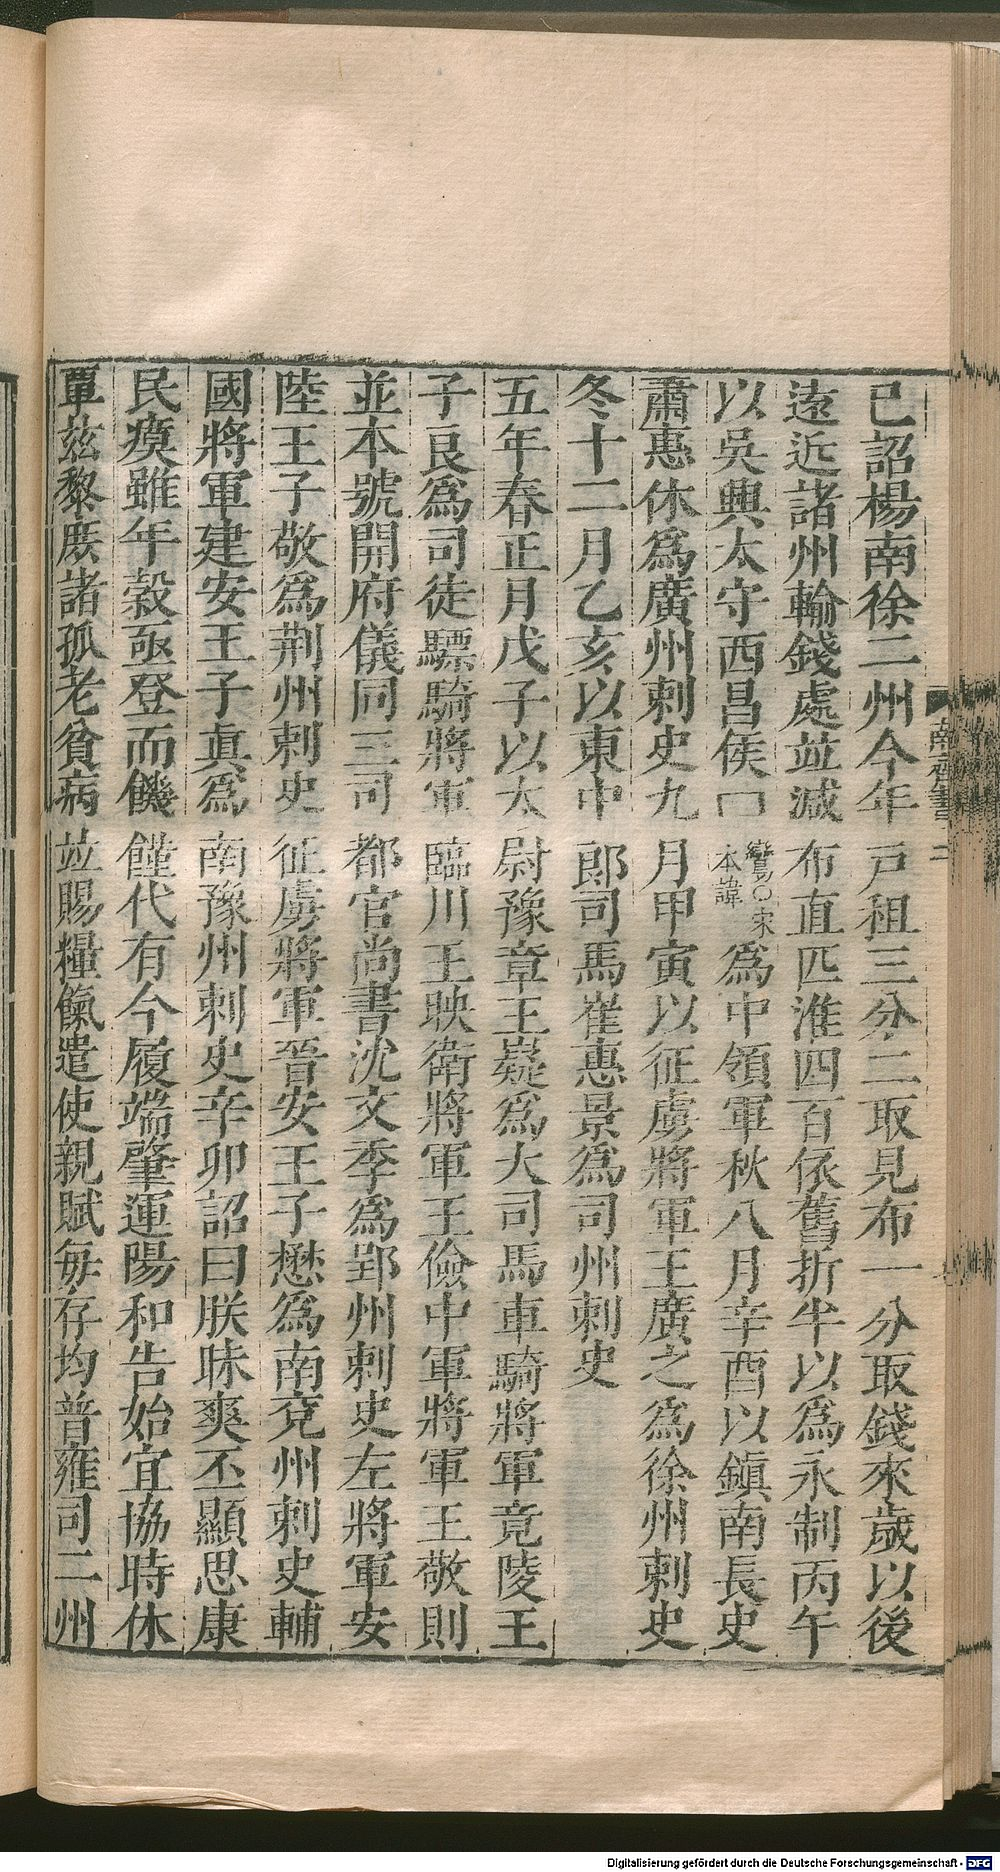 已詔楊南徐二州今年戶租三分二取見布一分取錢來歲以後
遠近諸州輸錢處並減布直匹淮四百依舊折半以爲永制丙午
以吳興太守西昌侯□鸞○宋本諱爲中領軍秋八月辛酉以鎮南長史
蕭惠休爲廣州刺史九月甲寅以征虜將軍王廣之爲徐州刺史
冬十二月乙亥以東中郎司馬崔惠景爲司州刺史
五年春正月戊子以太尉豫章王嶷爲大司馬車騎將軍竟陵王
子良爲司徒驃騎將軍臨川王映衛將軍王儉中軍將軍王敬則
並本號開府儀同三司都官尚書沈文季爲郢州刺史左將軍安
陸王子敬爲荆州刺史征虜將軍晉安王子懋爲南兗州刺史輔
國將軍建安王子眞爲南豫州刺史辛卯詔曰朕昧爽丕顯思康
民瘼雖年穀亟登而饑饉代有今履端肇運陽和告始宜協時休
覃茲黎庶諸孤老貧病並賜糧餼遣使親賦每存均普雍司二州
南齊書二
Digitalisierung gefördert durch die Deutsche Forschungsgemeinschaft - DFG